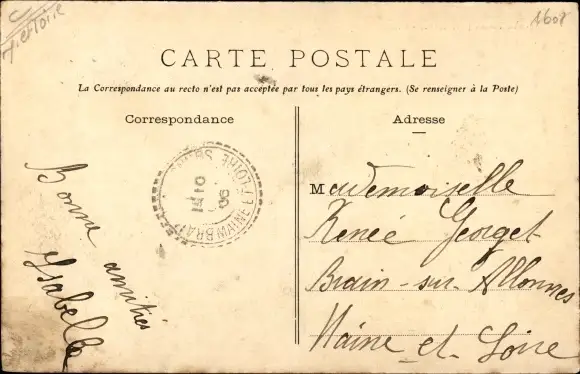 M. et Loire
1608
CARTE POSTALE
La Correspondance au recto n'est pas acceptée par tous les pays étrangers. (Se renseigner à la Poste)
Correspondance
Adresse
Bonne amitiés
Ysabelle
Mademoiselle
Renée Georget
Brain-sur-Allonnes
Maine-et-Loire